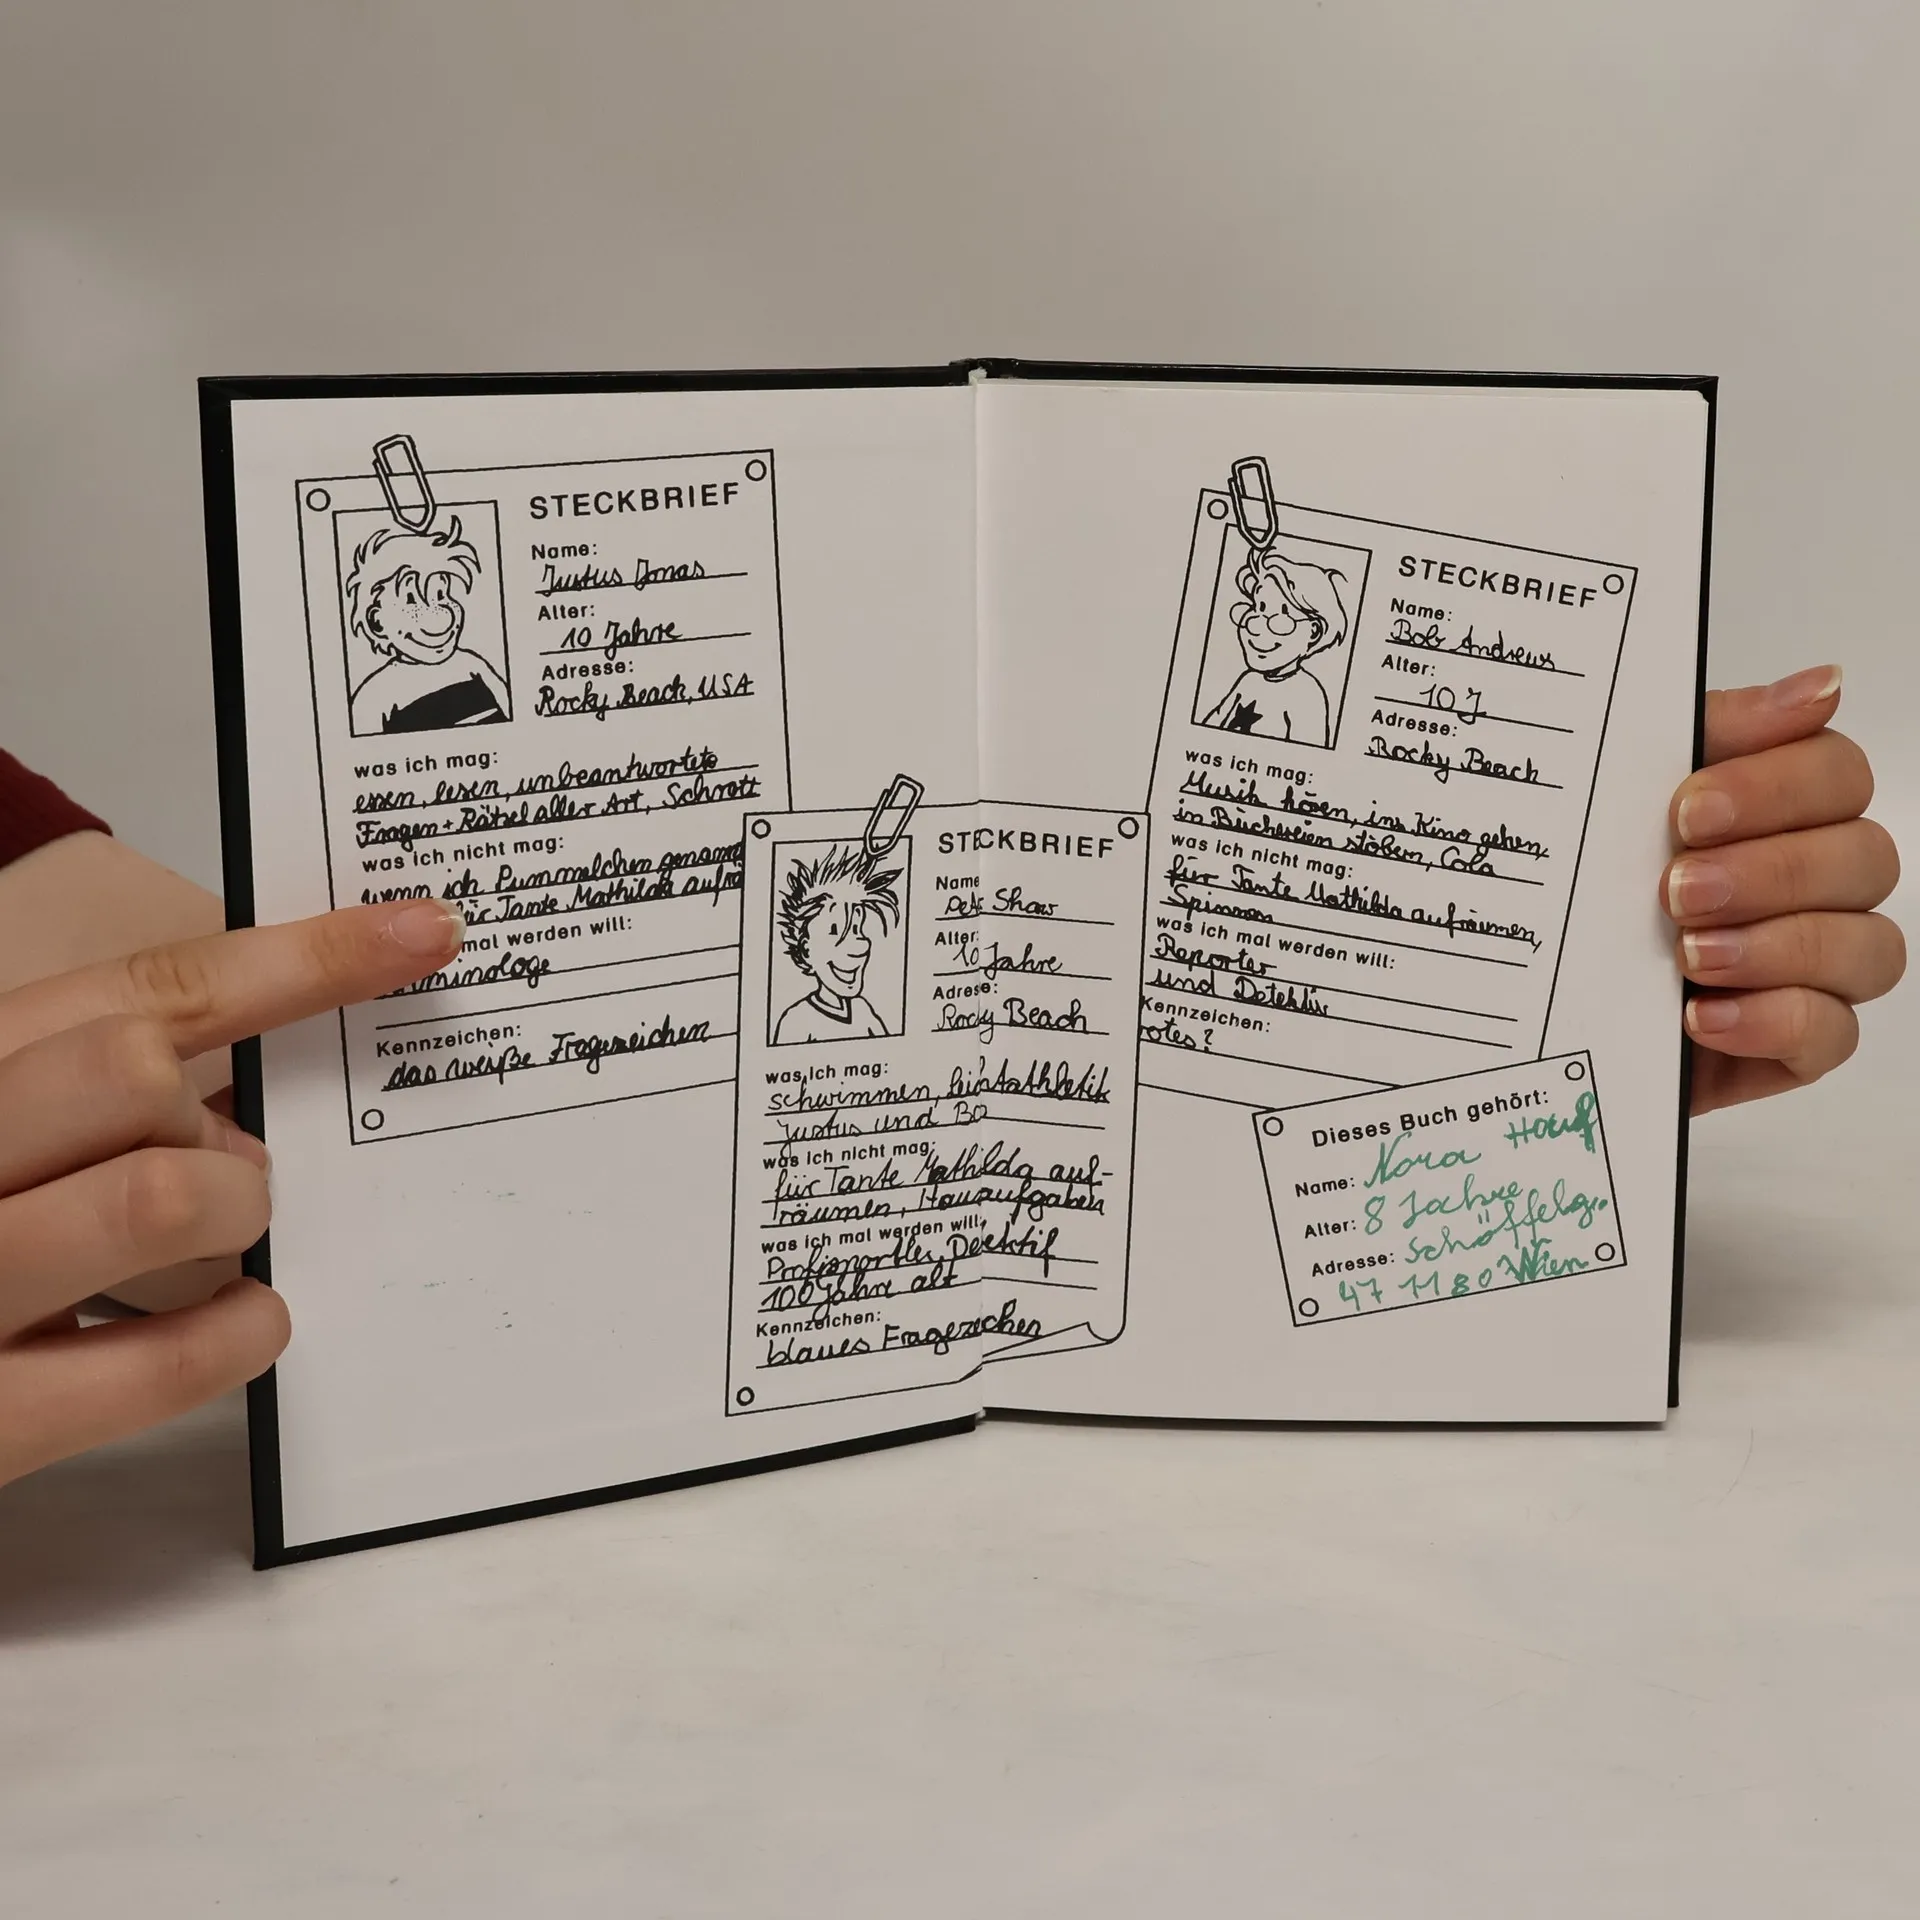 STECKBRIEF
Name:
Justus Jonas
Alter:
10 Jahre
Adresse:
Rocky Beach, USA
was ich mag:
essen, lesen, unbeantwortete
Fragen + Rätsel aller Art, Schrott
was ich nicht mag:
wenn ich Pummelchen genannt
für Tante Mathilda aufrä
mal werden will:
minologe
Kennzeichen:
das weiße Fragezeichen
STECKBRIEF
Name
Peter Shaw
Alter:
10 Jahre
Adresse:
Rocky Beach
was ich mag:
schwimmen, Leichtathletik
Justus und Bo
was ich nicht mag:
für Tante Mathilda auf-
räumen, Hausaufgaben
was ich mal werden will:
Profisportler, Detektif
100 Jahre alt
Kennzeichen:
blaues Fragezeichen
STECKBRIEF
Name:
Bob Andrews
Alter:
10 J
Adresse:
Rocky Beach
was ich mag:
Musik hören, ins Kino gehen,
in Büchereien stöbern, Cola
was ich nicht mag:
für Tante Mathilda aufräumen,
Spinnen
was ich mal werden will:
Reporter
und Detektiv
Kennzeichen:
rotes ?
Dieses Buch gehört:
Name: Nora
Alter: 8 Jahre
Adresse: Schöffelg.
47 1180 Wien